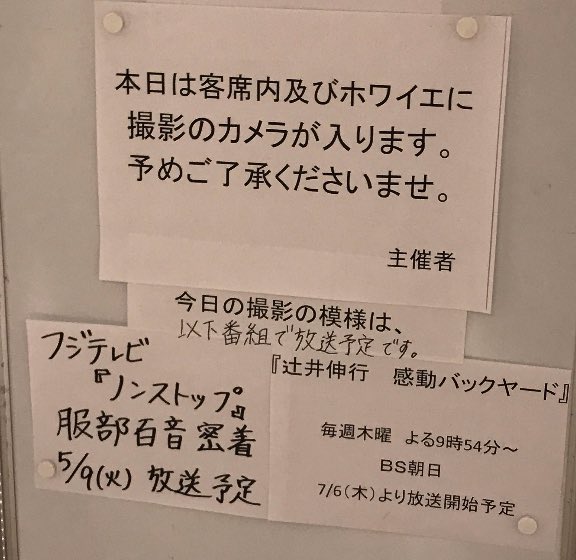 本日は客席内及びホワイエに
撮影のカメラが入ります。
予めご了承くださいませ。
主催者
今日の撮影の模様は、
以下番組で放送予定です。
フジテレビ
『ノンストップ』
服部百音 密着
5/9(火) 放送予定
『辻井伸行　感動バックヤード』
毎週木曜　よる9時54分～
BS朝日
7/6（木）より放送開始予定